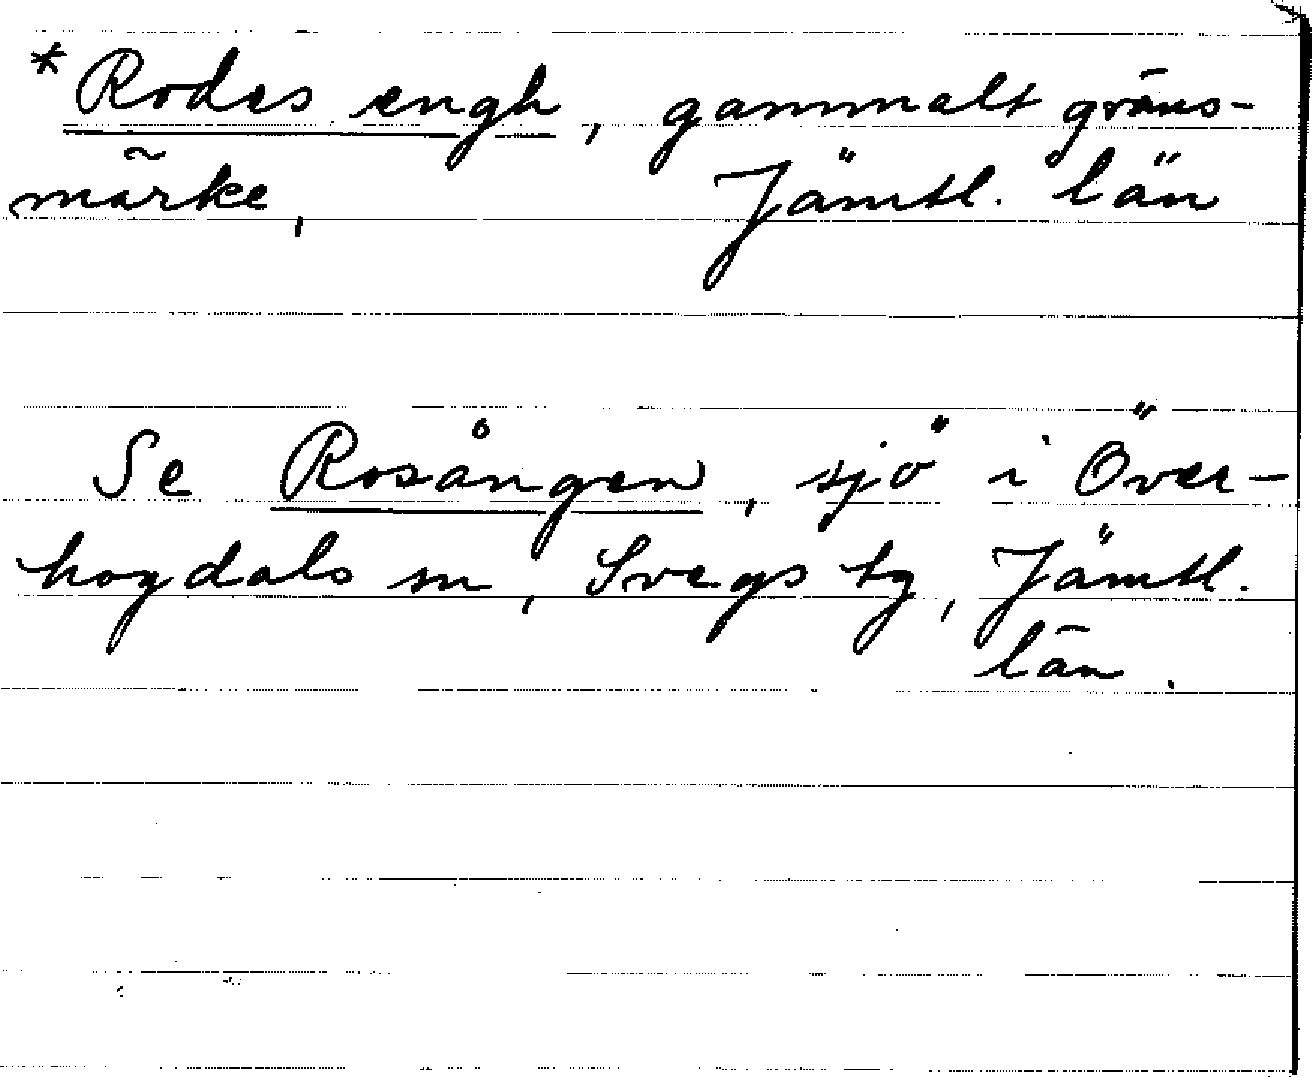 * Rodes engh, gammalt gräns-
märke, Jämtl. län
Se Rosången, sjö i Över-
hogdals sn, Svegs tg, Jämtl.
län.